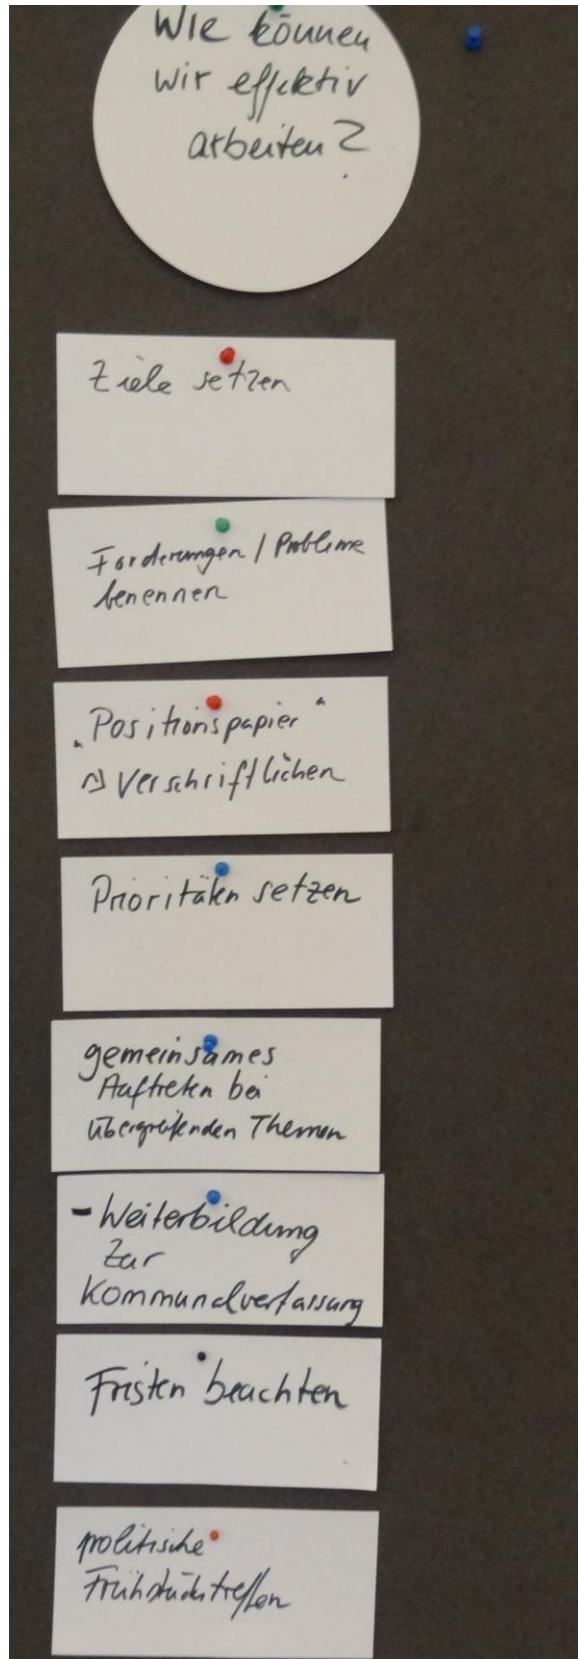 Wie können
wir effektiv
arbeiten?
Ziele setzen
Forderungen / Probleme
benennen
„Positionspapier“
→ Verschriftlichen
Prioritäten setzen
gemeinsames
Auftreten bei
übergreifenden Themen
- Weiterbildung
zur
Kommunalverfassung
Fristen beachten
politische
Frühstückstreffen